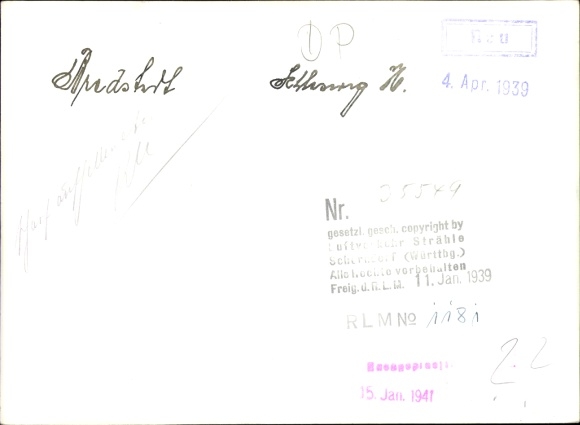 DP
Neu
Bredstedt Schleswig H.
4. Apr. 1939
Nr. 35549
gesetzl. gesch. copyright by
Luftverkehr Strähle
Schorndorf (Württbg.)
Alle Rechte vorbehalten
Freig. d. R.L.M. 11. Jan. 1939
RLM No 1181
15. Jan. 1941
2.2